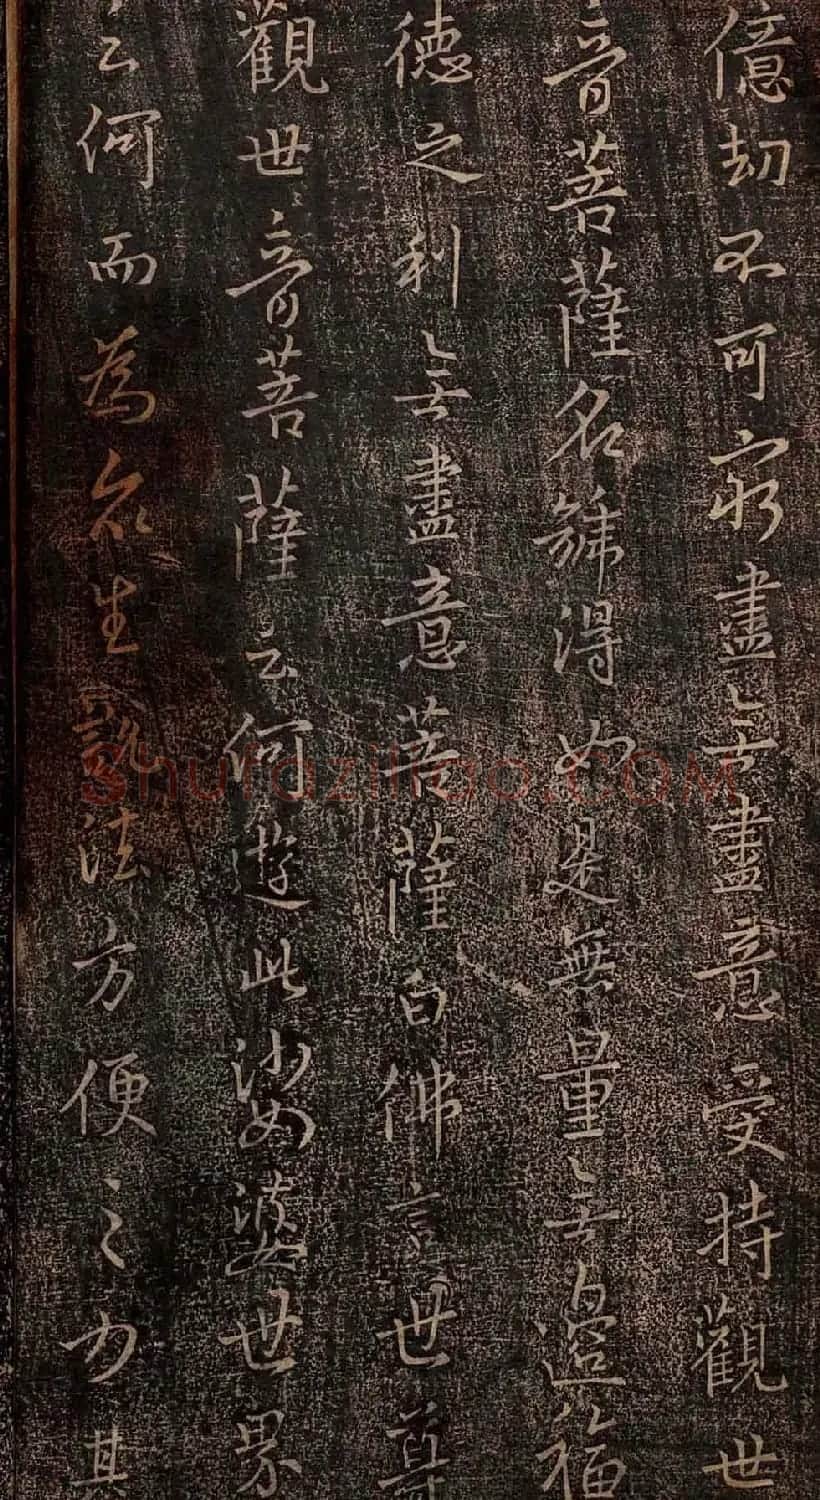 億劫不可窮盡无盡意受持觀世
音菩薩名號得如是無量无邊福
德之利无盡意菩薩白佛言世尊
觀世音菩薩云何遊此娑婆世界
云何而為眾生說法方便之力其
Shufaziliao.COM